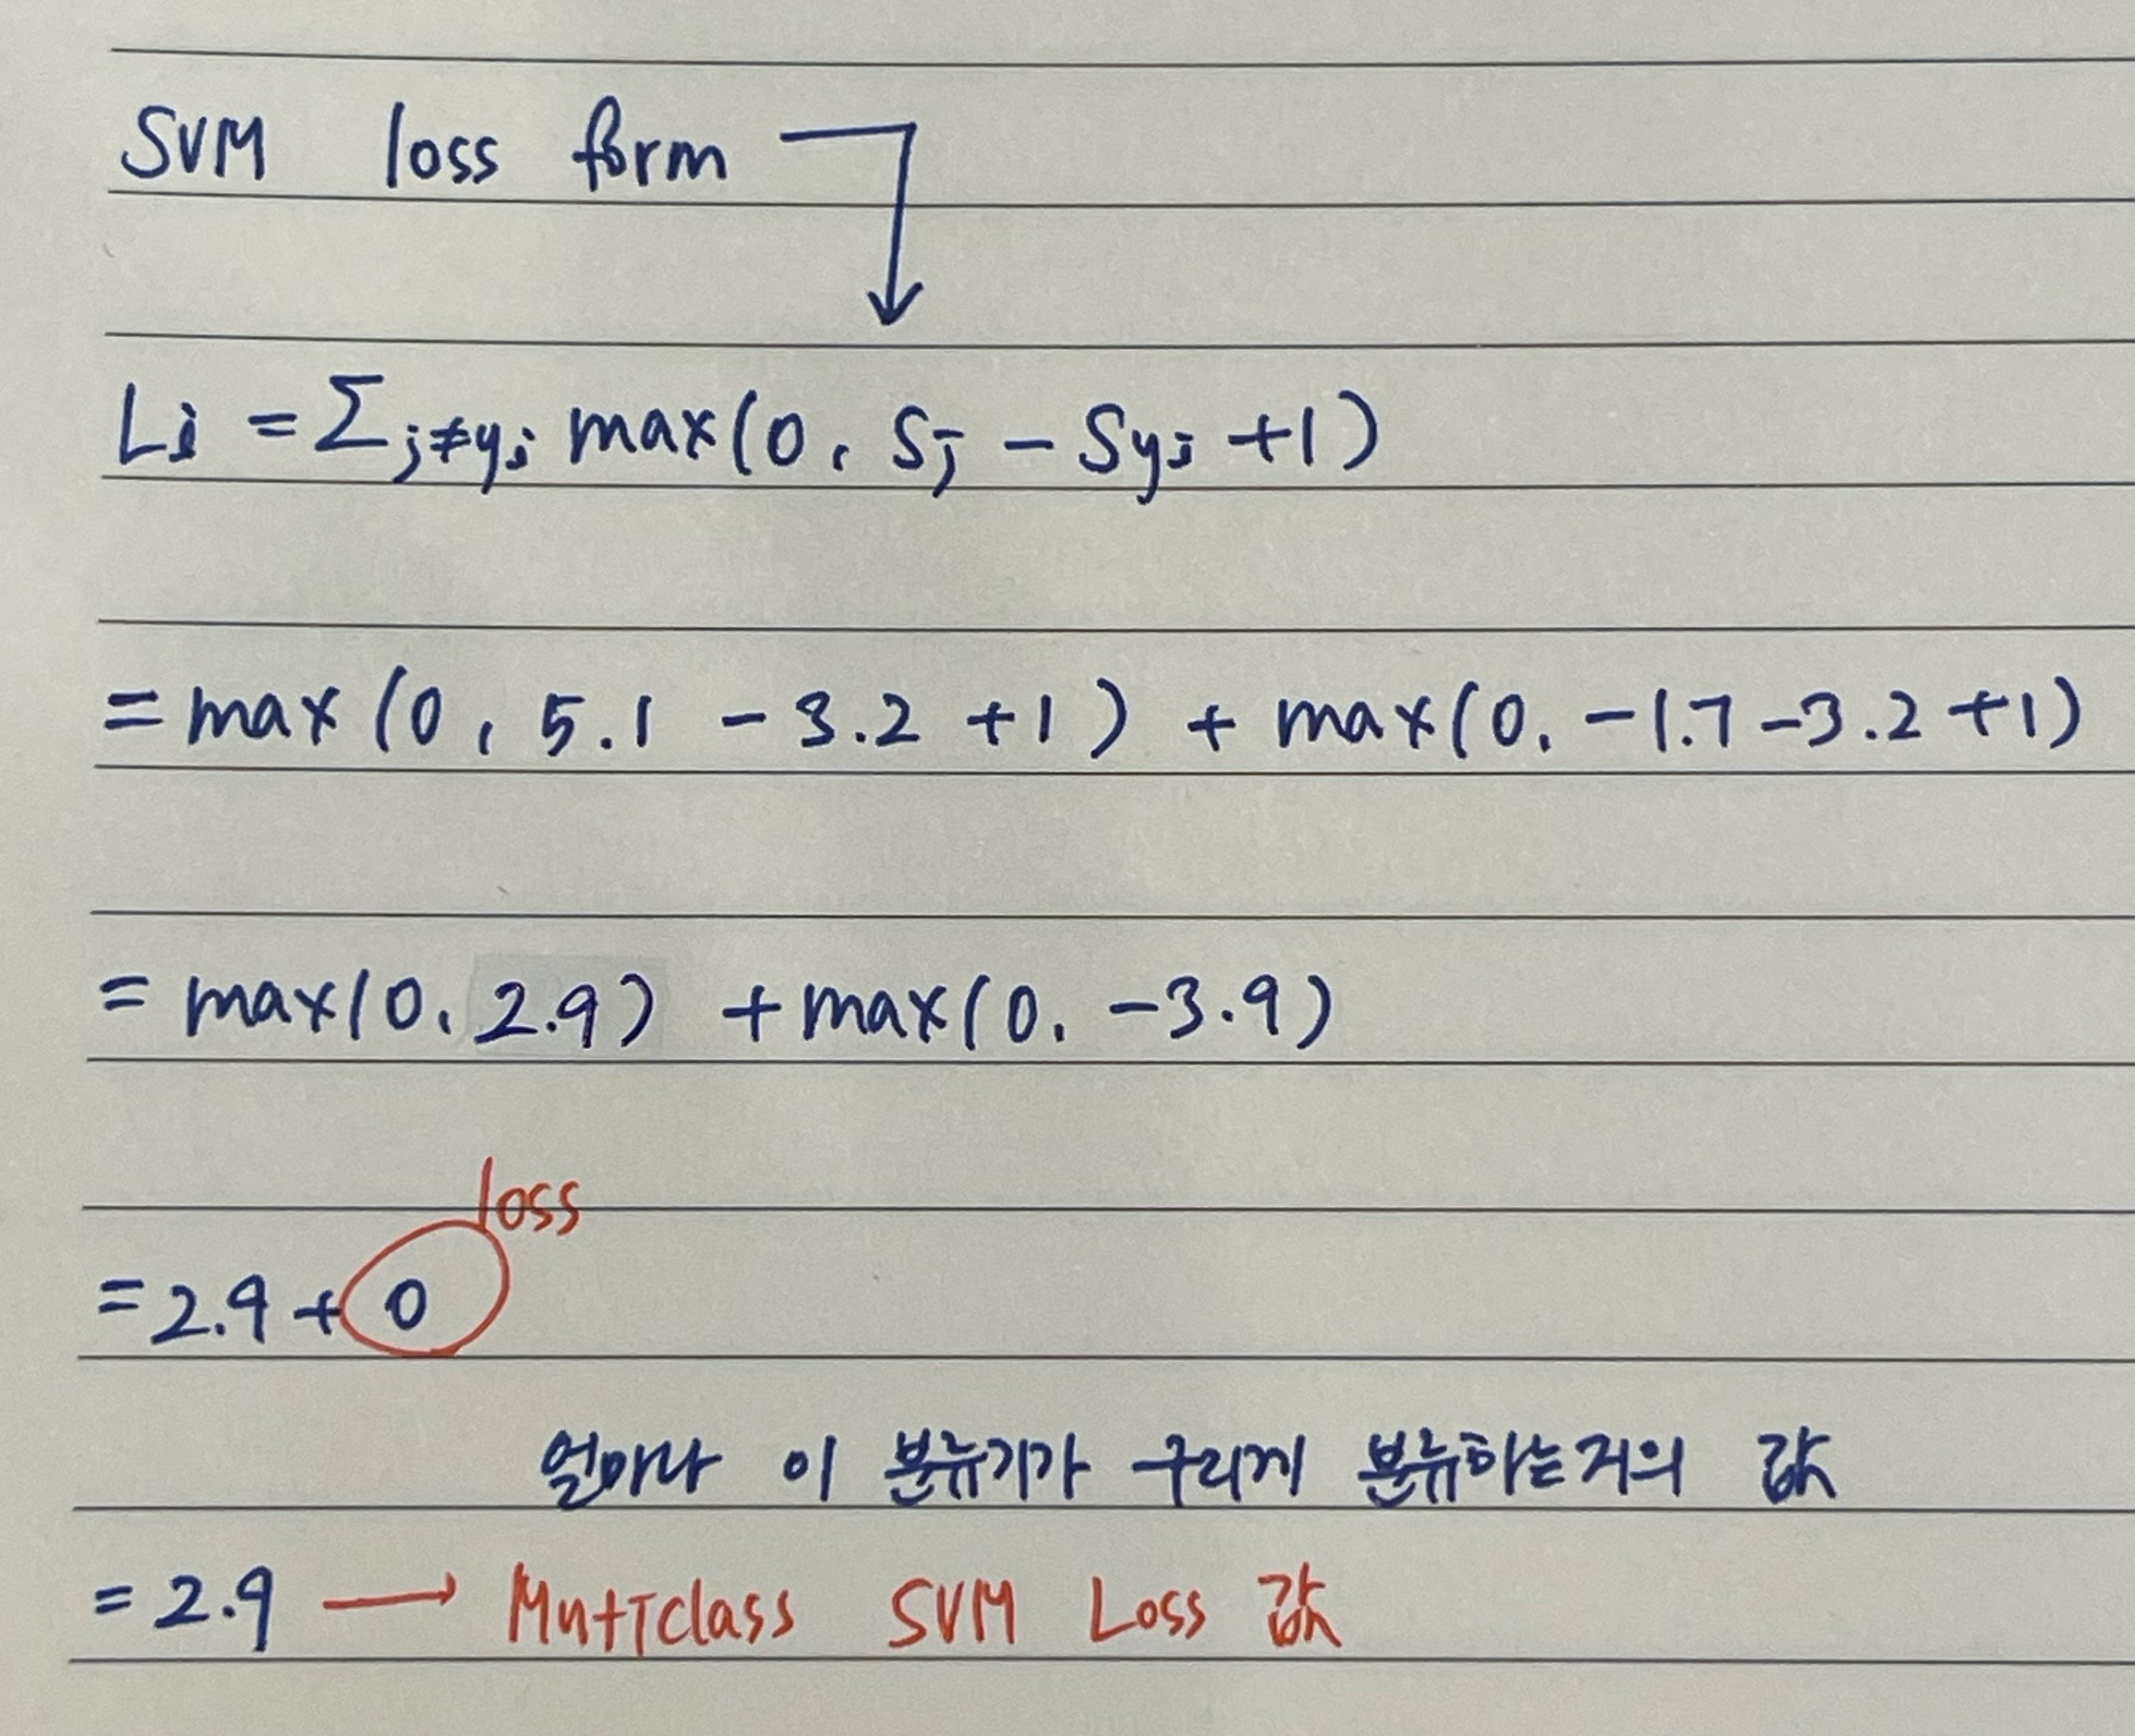 SVM loss form
Li = Σj≠yi max(0, Sj - Syi +1)
= max(0, 5.1 - 3.2 +1) + max(0, -1.7 -3.2 +1)
= max(0, 2.9) + max(0, -3.9)
loss
= 2.9 + 0
얼마나 이 분류기가 구리게 분류하는지의 값
= 2.9 → Multiclass SVM Loss 값